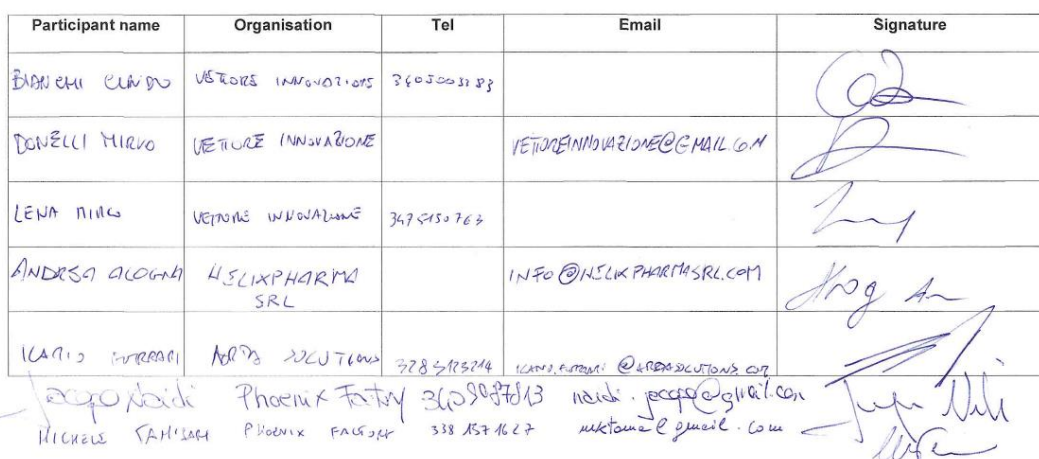 Participant name Organisation Tel Email Signature
BIANCHI VETTORE INNOVAZIONE
DONELLI MIRVO VETTORE INNOVAZIONE VETTOREINNOVAZIONE@GMAIL.COM
LENA MIRCO VETTORE INNOVAZIONE 3475150763
ANDREA ALOGNA HELIXPHARMA INFO@HELIXPHARMASRL.COM
SRL
ILARIO FERRARI SOLUTIONS
Jacopo Naidi Phoenix Factory naidi.jacopo@gmail.com
MICHELE TAMISARI PHOENIX FACTORY 338 1571627 mktoma@gmail.com